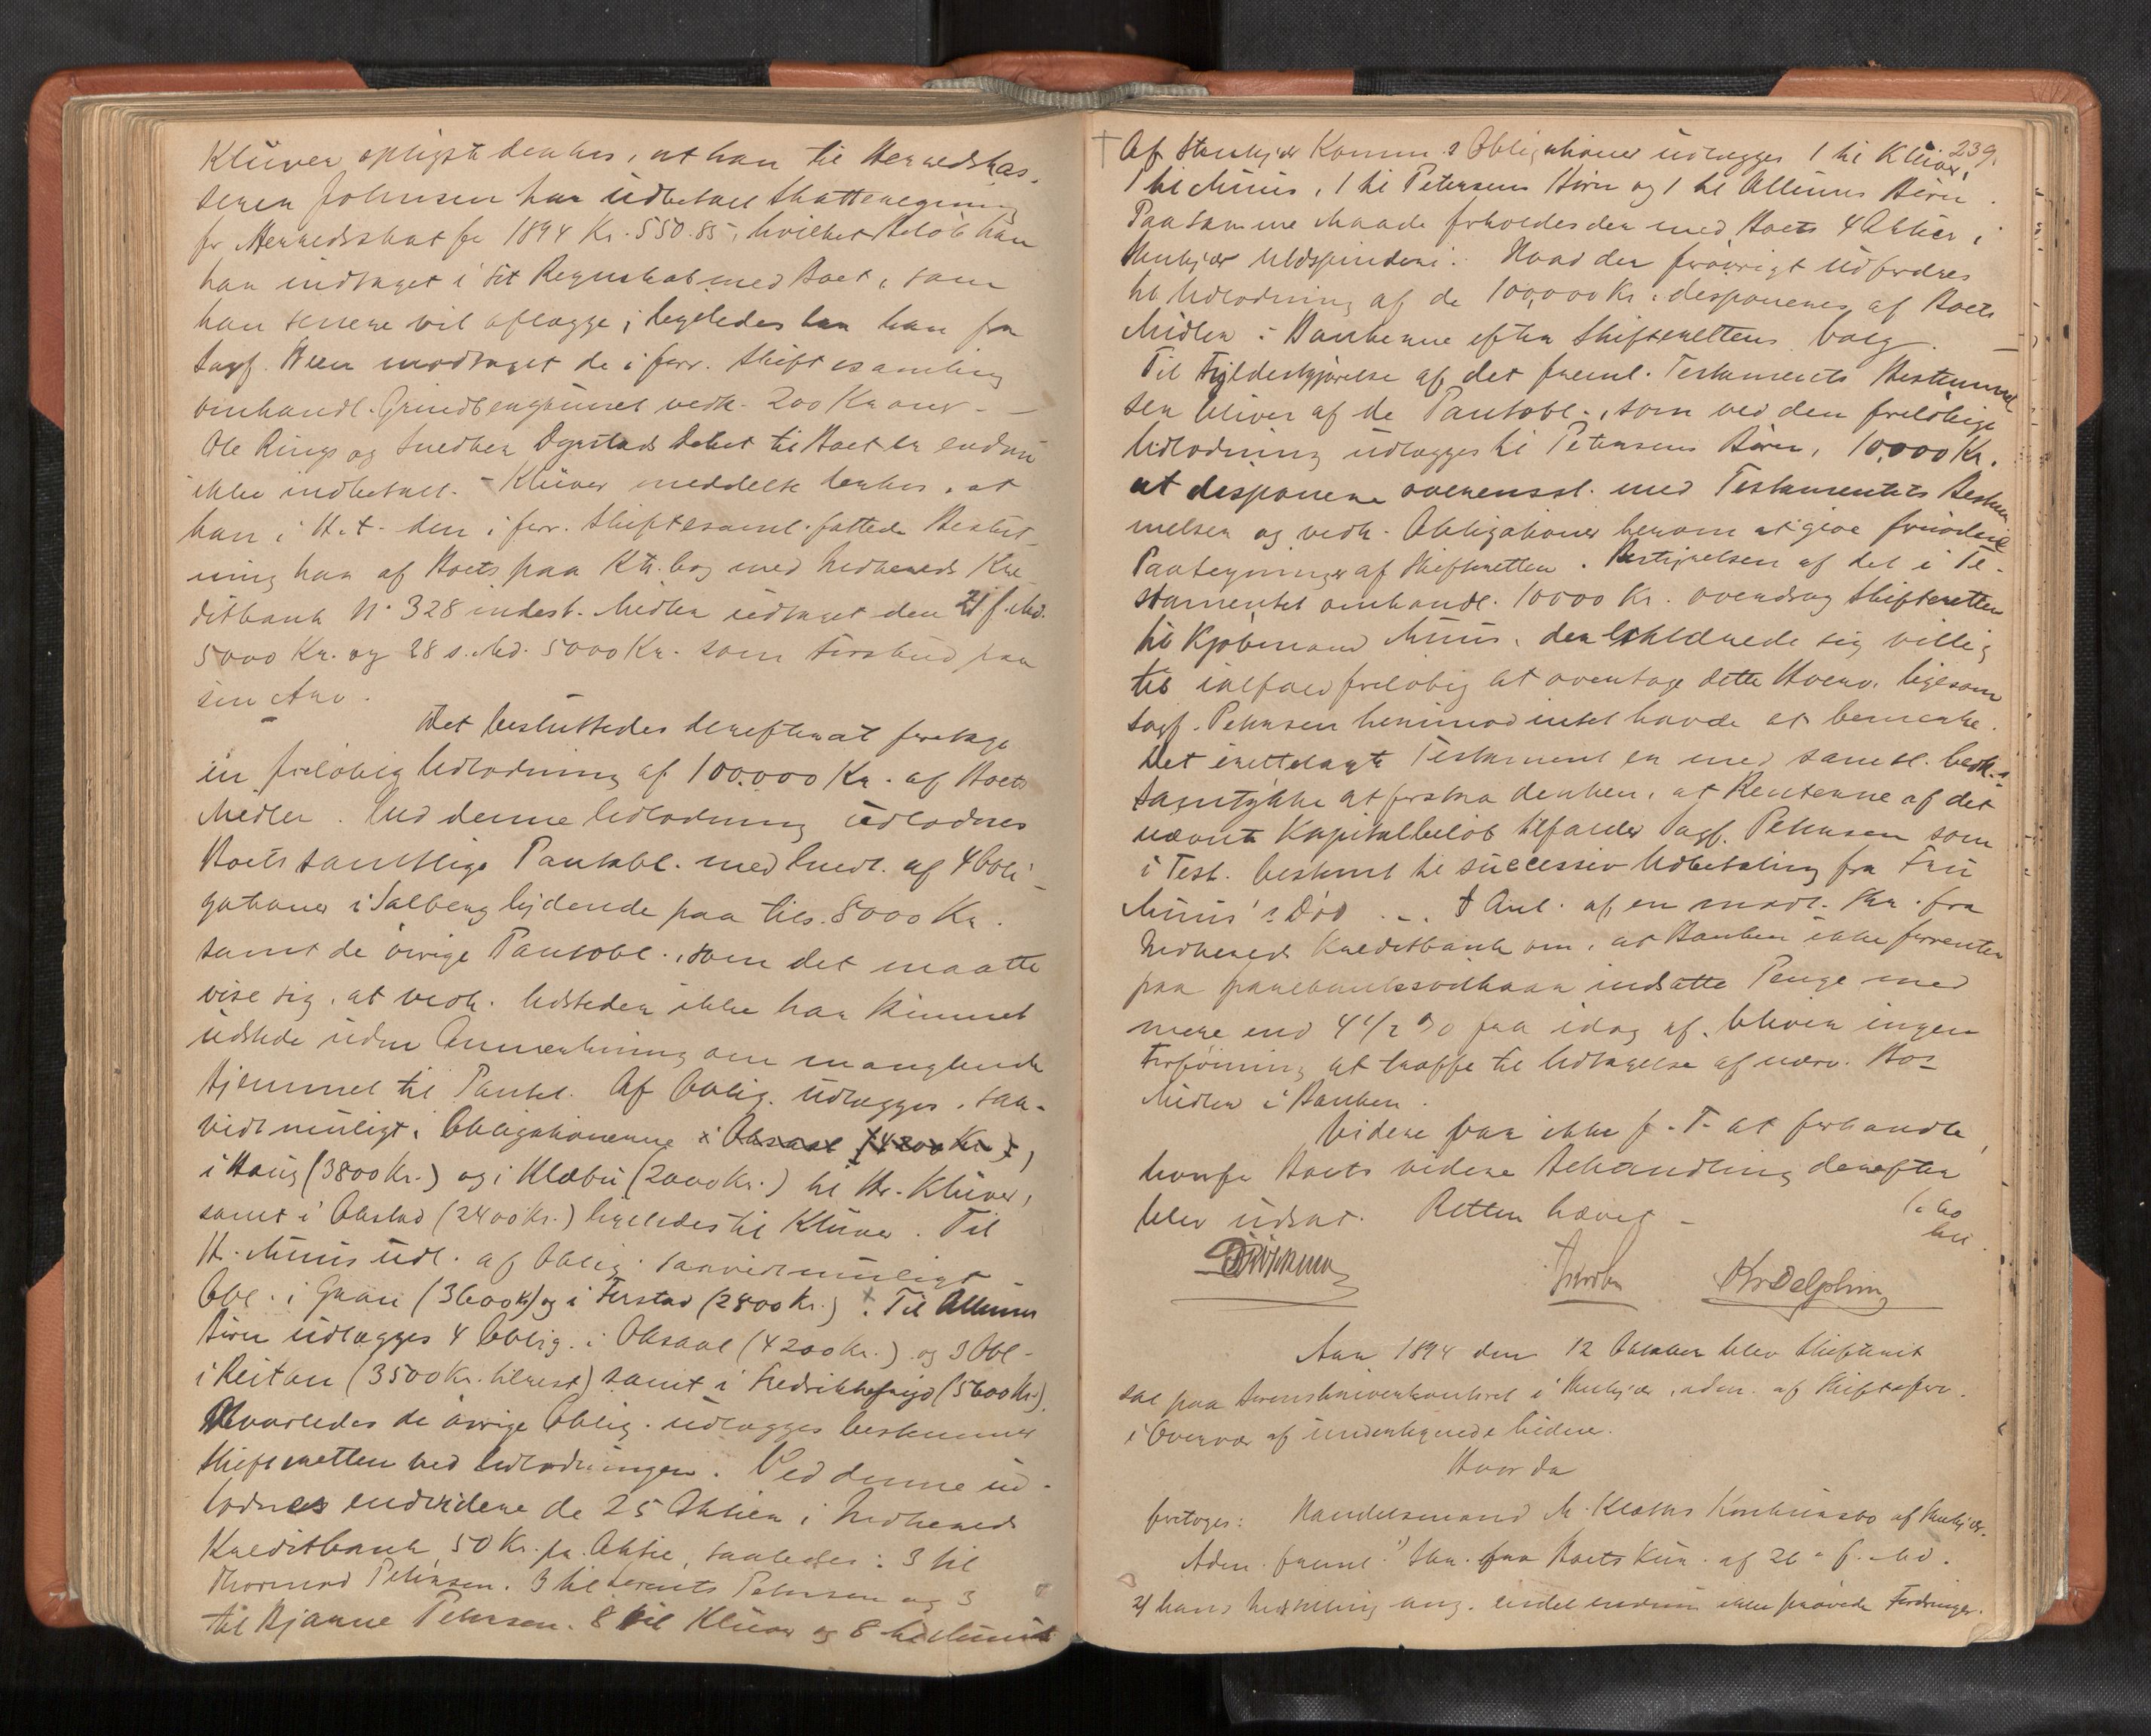 Klüver oplyste derhos, at han til Herredskas-
serer Johnsen har udbetalt Skatteregning
for Herredsskat for 1894 Kr. 550.85, hvilket Beløb han
har indtaget i sit Regnskab med Boet, som
han senere vil aflægge; ligeledes har han fra
Sagf. Meen modtaget de i forr. Skiftesamling
omhandl. Grundbogspunct vedk. 200 Kroner. —
Ole Rings og Snedker Dyrstads Debet til Boet er endnu
ikke indbetalt. - Klüver meddelte derhos, at
han i H.t. den i forr. Skiftesaml. fattede Beslut-
ning har af Boets paa Ktr. bog med Indherreds Kre-
ditbank N° 328 indest. Midler udtaget den 21 f. Md.
5000 Kr. og 28 s. Md. 5000 Kr. som Forskud paa
sin Arv.
Det besluttedes derefter at foretage
en foreløbig Udlodning af 100,000 Kr. af Boets
Midler. Ved denne Udlodning udloddes
Boets samtlige Pantobl. med Undt. af 4 Obli-
gationer i Salberg lydende paa tils. 8000 Kr.
samt de øvrige Pantobl., som det maatte
vise sig, at vedk. Udsteder ikke har kunnet
udstede uden Anmerkning om manglende
Hjemmel til Pantet. Af Oblig. udlægges, saa-
vidt muligt, Obligationerne i Oksaal (4200 Kr.),
i Haug (3800 Kr.) og i Klæbu (2000 Kr.) til Hr. Klüver,
samt i Okstad (2400 Kr.) ligeledes til Klüver. Til
H. Muus udl. af Oblig. saavidt muligt
Obl. i Graan (3600 Kr) og i Forstad (2800 Kr.) + . Til Allums
Børn udlægges 4 Oblig. i Oksaal (4200 Kr.) og 3 Obl.
i Reitan (3500 Kr. tilrest) samt i Fredrikke (5600 Kr.).
Hvorledes de øvrige Oblig. udlægges bestemmer
Skifteretten ved Udlodningen. Ved denne ud-
loddes endvidere de 25 Aktier i Indherreds
Kreditbank, 50 Kr. pr. Aktie, saaledes: 3 til
Thormod Petersen, 3 til Petersen og 3
til Bjarne Petersen. 8 til Klüver og 8 til Muus
239.
+ Af Stenkjær Komm.s Obligationer udlægges 1 til Klüver,
1 til Muus, 1 til Petersens Børn og 1 til Allums Børn.
Paa samme Maade forholdes der med Boets 4 Aktier i
Stenkjær Uldspinderi. Hvad der forøvrigt udfordres
til Udlodning af de 100,000 Kr. disponeres af Boets
Midler i Bankerne efter Skifterettens Valg. —
Til Fyldestgjørelse af det freml. Testaments Bestemmel-
ser bliver af de Pantobl., som ved den foreløbige
Udlodning udlægges til Petersens Børn, 10,000 Kr.
at disponere overensst. med Testamentets Bestem-
melser og vedk. Obligationer herom at give fornøden
Paategninger af Skifteretten. Bestyrelsen af det i Te-
stamentet omhandl. 10000 Kr. overdrog Skifteretten
til Kjøbmand Muus, der erklærede sig villig
til ialfald foreløbig at overtage dette Hverv, ligesom
Sagf. Petersen herimod intet havde at bemerke.
Det irettelagte Testament er med saml. vedk.s
Samtykke at forstaa derhen, at Renterne af det
nævnte Kapitalbeløb tilfalder Sagf. Petersen som
i Test. bestemt til successiv Udbetaling fra Fru
Muus's Død. — I Anl. af en modt. Skr. fra
Indherreds Kreditbank om, at Banken ikke forrenter
paa indsatte Penge med
mere end 4 1/2 % fra idag af, bliver ingen
Forføining at træffe til Udtagelse af nærv. Bos
Midler i Banken.
Videre var ikke f. T. at forhandle,
hvorfor Boets videre Behandling derefter
blev udsat. Retten hævet -
Kr Delphin
Aar 1894 den 12 Oktober blev Skifteret
sat paa Sorenskriverkontoret i Stenkjær, adm. af Skifteforv.
i Overvær af undertegnede Vidner.
Hvor da
foretoges: Handelsmand M. Klæbus Konkursbo af Stenkjær.
Adm. freml. 1) Skr. fra Boets Kur. af 26 f. Md.
2) hans Indstilling ang. endel endnu ikke prøvede Fordringer.